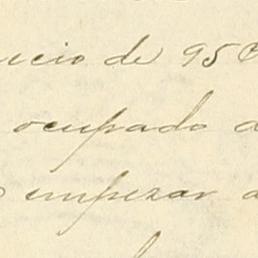 ucio de 950
ocupado d
empezar a